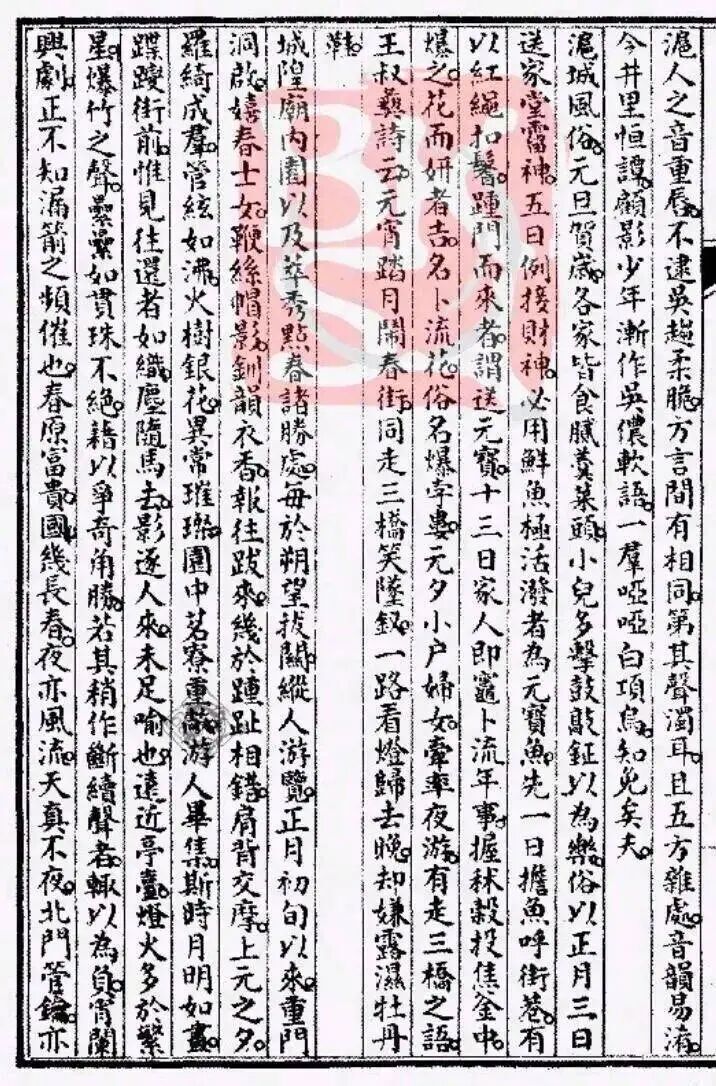 滬人之音重唇不逮吳趨柔脆方言間有相同第其聲濁耳且五方雜處音韻易淆
今井里恒譚顧影少年漸作吳儂軟語一羣啞啞白項烏知免矣夫
滬城風俗元旦賀歲各家皆食膩羹菜頭小兒多擊鼓敲鉦以為樂俗以正月三日
送家堂霤神五日例接財神必用鮮魚極活潑者為元寶魚先一日擔魚呼街巷有
以紅繩扣鬐踵門而來者謂送元寶十三日家人即竈卜流年事握秫穀投焦釜中
爆之花而妍者吉名卜流花俗名爆孛婁元夕小户婦女牽率夜游有走三橋之語
王叔彝詩云元宵踏月鬧春街同走三橋笑墜釵一路看燈歸去晚却嫌露濕牡丹
鞋
城隍廟內園以及萃秀點春諸勝處每於朔望拔關縱人游覽正月初旬以來重門
洞啟嬉春士女鞭絲帽影釧韻衣香報往跋來幾於踵趾相錯肩背交摩上元之夕
羅綺成羣管絃如沸火樹銀花異常璀璨園中茗寮重敞游人畢集斯時月明如晝
蹀躞街前惟見往還者如織塵隨馬去影逐人來未足喻也遠近亭臺燈火多於繁
星爆竹之聲纍纍如貫珠不絕藉以爭奇角勝若其稍作斷續聲者輒以為負宵闌
興劇正不知漏箭之頻催也春原富貴國幾長春夜亦風流天真不夜北門管鑰亦